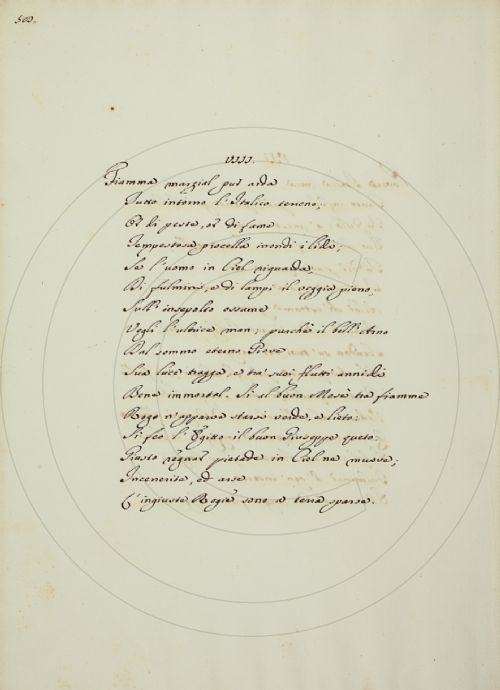 502.
VIII.
Fiamma marzial pur arda
Tutto intorno l'Italico terreno;
Or di peste, or di fame
Tempestosa procella inondi i lidi;
Se l'uomo in Ciel riguarda,
Di fulmini, e di lampi il veggia pieno;
Sull' insepolto ossame
Vegli l'ultrice man; purchè il bell'Arno
Dal sommo eterno Giove
Sua luce tragga, e tra' suoi flutti annidi
Bene immortal. Sì al buon Mosè tra fiamme
Rogo n'apparve starsi verde, e lieto:
Sì feo l'Egitto il buon Giuseppe queto
Giusto regnar pietade in Ciel ne muove;
Incenerite, ed arse
L'ingiuste Regie sono a terra sparse.